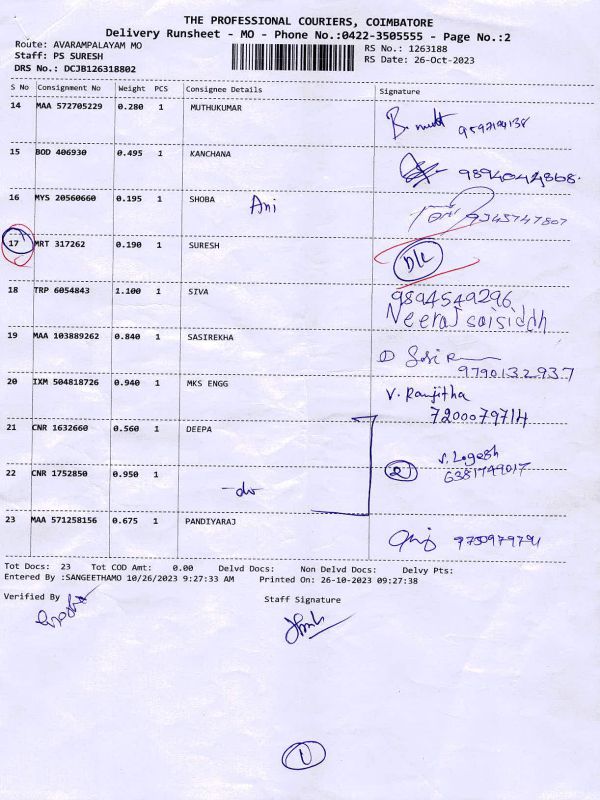 THE PROFESSIONAL COURIERS, COIMBATORE
Delivery Runsheet - MO - Phone No.:0422-3505555 - Page No.:2
Route: AVARAMPALAYAM MO
RS No.: 1263188
Staff: PS SURESH
RS Date: 26-Oct-2023
DRS No.: DCJB126318802
S No Consignment No Weight PCS Consignee Details Signature
14 MAA 572705229 0.280 1 MUTHUKUMAR
15 BOD 406930 0.495 1 KANCHANA
9894042868.
16 MYS 20560660 0.195 1 SHOBA
Ani
9345747807
17 MRT 317262 0.190 1 SURESH
D/L
18 TRP 6054843 1.100 1 SIVA
9894549296
Neeraj saisiddh
19 MAA 103889262 0.840 1 SASIREKHA
9790132937
20 IXM 504818726 0.940 1 MKS ENGG
V. Ranjitha
7200079714
21 CNR 1632660 0.560 1 DEEPA
V. Logesh
6381749017
22 CNR 1752850 0.950 1
-do
2
23 MAA 571258156 0.675 1 PANDIYARAJ
9750979791
Tot Docs: 23 Tot COD Amt: 0.00 Delvd Docs: Non Delvd Docs: Delvy Pts:
Entered By :SANGEETHAMO 10/26/2023 9:27:33 AM Printed On: 26-10-2023 09:27:38
Verified By
Staff Signature